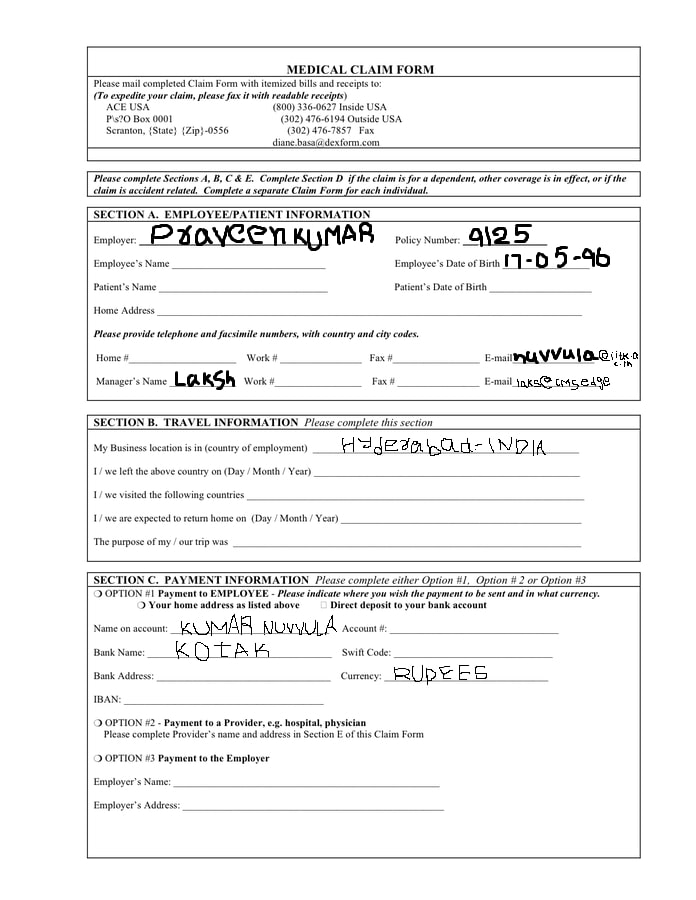 MEDICAL CLAIM FORM
Please mail completed Claim Form with itemized bills and receipts to:
(To expedite your claim, please fax it with readable receipts)
ACE USA (800) 336-0627 Inside USA
P\s?O Box 0001 (302) 476-6194 Outside USA
Scranton, {State} {Zip}-0556 (302) 476-7857 Fax
diane.basa@dexform.com
Please complete Sections A, B, C & E. Complete Section D if the claim is for a dependent, other coverage is in effect, or if the
claim is accident related. Complete a separate Claim Form for each individual.
SECTION A. EMPLOYEE/PATIENT INFORMATION
Employer: Praveen KUMAR Policy Number: 9125
Employee's Name Employee's Date of Birth 17-05-96
Patient's Name Patient's Date of Birth
Home Address
Please provide telephone and facsimile numbers, with country and city codes.
Home # Work # Fax # E-mail nuvvula
Manager's Name Laksh Work # Fax # E-mail laks@cmsedge
SECTION B. TRAVEL INFORMATION Please complete this section
My Business location is in (country of employment) Hyderabad-INDIA
I / we left the above country on (Day / Month / Year)
I / we visited the following countries
I / we are expected to return home on (Day / Month / Year)
The purpose of my / our trip was
SECTION C. PAYMENT INFORMATION Please complete either Option #1, Option # 2 or Option #3
❍ OPTION #1 Payment to EMPLOYEE - Please indicate where you wish the payment to be sent and in what currency.
❍ Your home address as listed above □ Direct deposit to your bank account
Name on account: KUMAR NUVVULA Account #:
Bank Name: KOTAK Swift Code:
Bank Address: Currency: RUPEES
IBAN:
❍ OPTION #2 - Payment to a Provider, e.g. hospital, physician
Please complete Provider's name and address in Section E of this Claim Form
❍ OPTION #3 Payment to the Employer
Employer's Name:
Employer's Address: